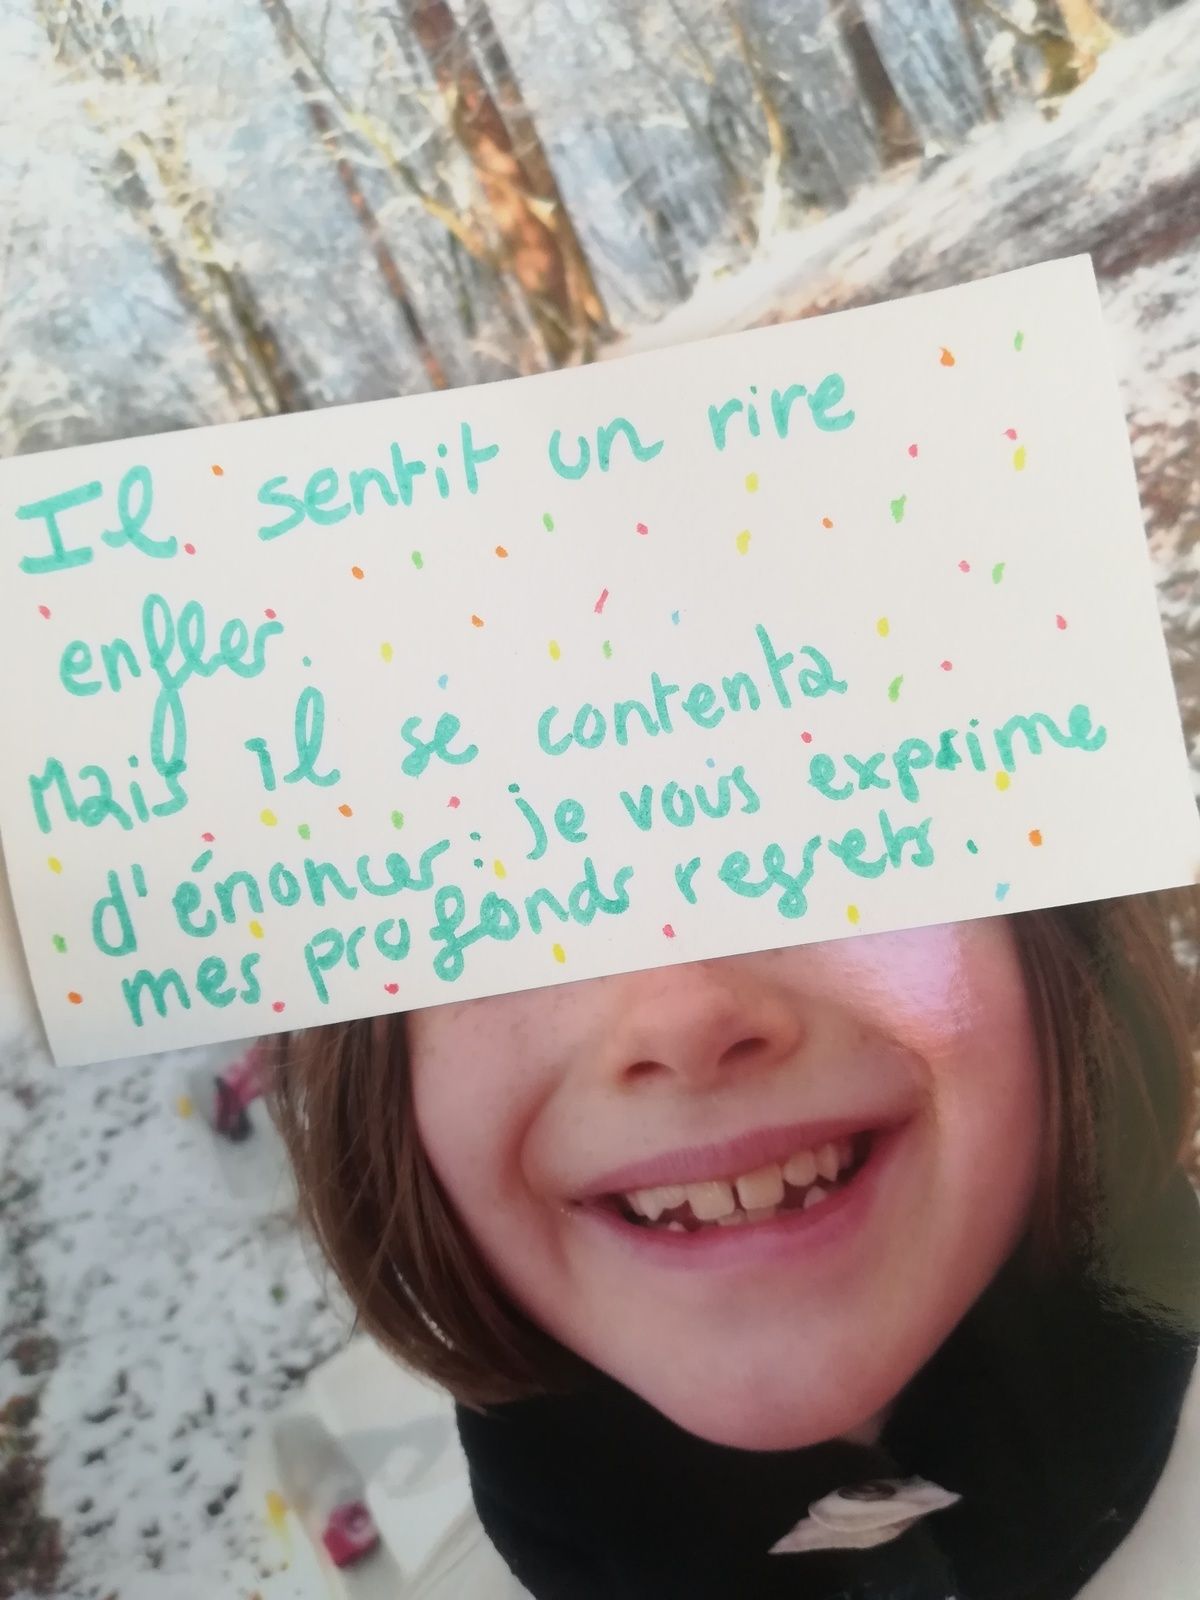 Il sentit un rire
enfler.
Mais il se contenta
d'énoncer : je vous exprime
mes profonds regrets.